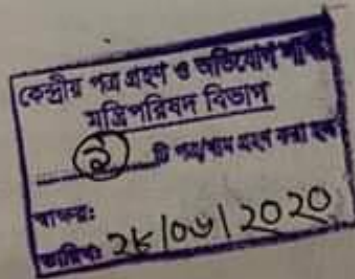 কেন্দ্রীয় পত্র গ্রহণ ও অভিযোগ শাখা
মন্ত্রিপরিষদ বিভাগ
টি পত্র/খাম গ্রহণ করা হল
স্বাক্ষর:
তারিখ: ২৮/০৬/2020